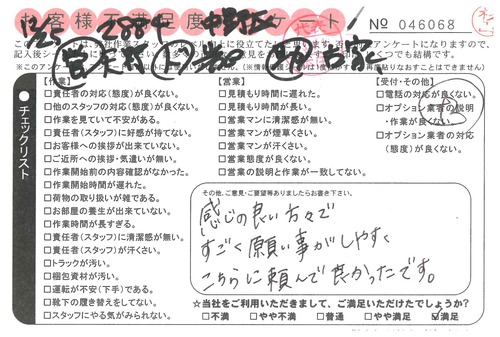 お客様不満足度アンケート
No 046068
記入後シー
□責任者の対応(態度)が良くない。
□他のスタッフの対応(態度)が良くない。
□作業を見ていて不安がある。
□責任者(スタッフ)に好感が持てない。
□お客様への挨拶が出来ていない。
□ご近所への挨拶・気遣いが無い。
□作業開始前の内容確認がなかった。
□作業開始時間が遅れた。
□荷物の取り扱いが雑である。
□お部屋の養生が出来ていない。
□作業時間が長すぎる。
□責任者(スタッフ)に清潔感が無い。
□責任者(スタッフ)が汗くさい。
□トラックが汚い。
□梱包資材が汚い。
□運転が不安(下手)である。
□靴下の履き替えをしてない。
□スタッフにやる気がみられない。
チェックリスト
【営業】
□見積もり時間に遅れた。
□見積もり時間が長い。
□営業マンに清潔感が無い。
□営業マンが煙草くさい。
□営業マンが汗くさい。
□営業態度が良くない。
□営業の説明と作業が一致してない。
【受付・その他】
□電話の対応が良くない。
□オプション業者の説明
・作業が良くない。
□オプション業者の対応
(態度)が良くない。
その他、ご意見・ご要望等ありましたらお書き下さい。
感じの良い方々で
すごく願い事がしやすく
こちらに頼んで良かったです。
☆当社をご利用いただきまして、ご満足いただけたでしょうか?
□不満 □やや不満 □普通 □やや満足 ☑満足